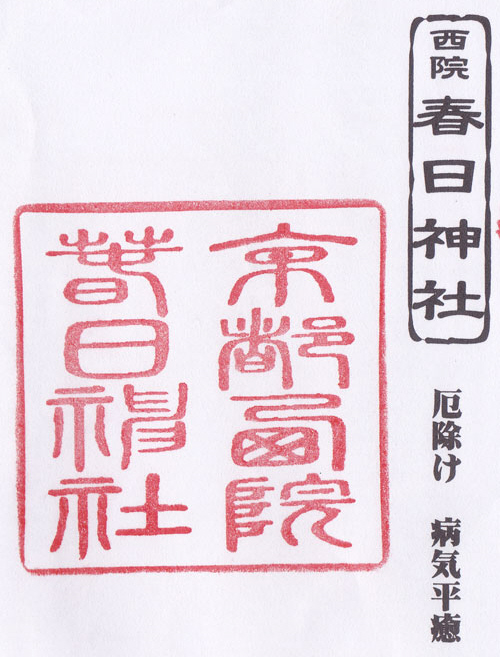 西院春日神社
厄除け 病気平癒
京都西院
春日神社